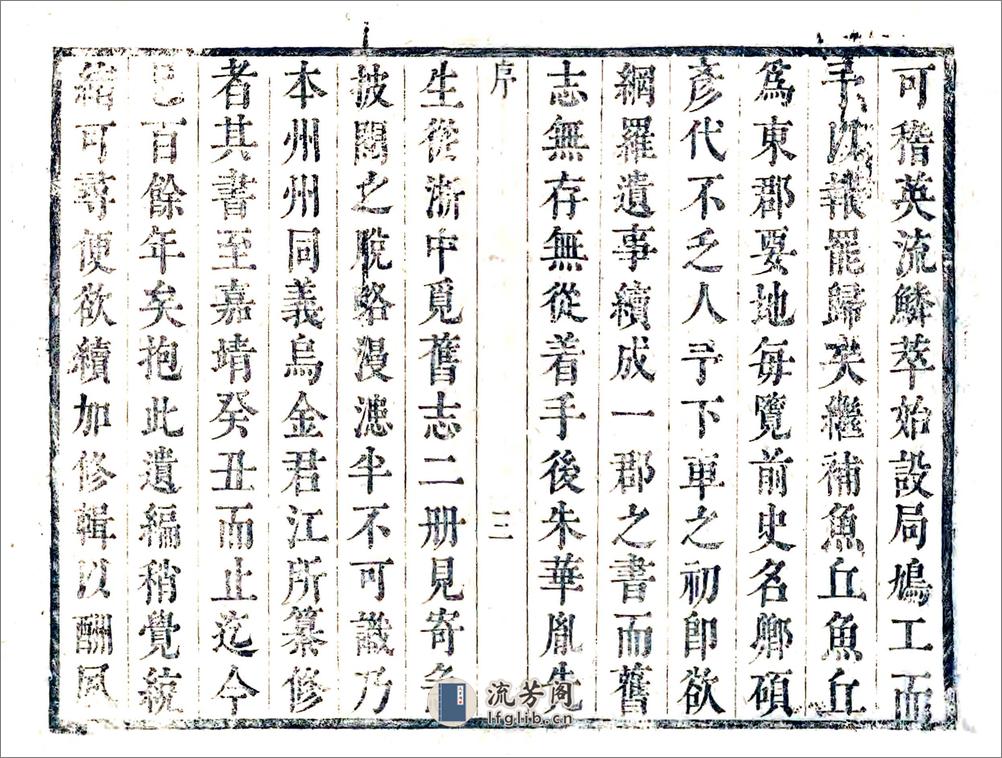 可稽英流鱗萃始設局鳩工而
予以報罷歸矣繼補魚丘魚丘
爲東郡要地每覽前史名鄉碩
彥代不乏人予下車之初卽欲
網羅遺事續成一郡之書而舊
志無存無從着手後朱華胤先
序
三
生從浙中覓舊志二册見寄
披閱之脫略漫漶半不可識乃
本州州同義烏金君江所纂修
者其書至嘉靖癸丑而止迄今
已百餘年矣抱此遺編稍覺統
緒可尋便欲續加修輯以酬夙
流芳阁
lfglib.cn